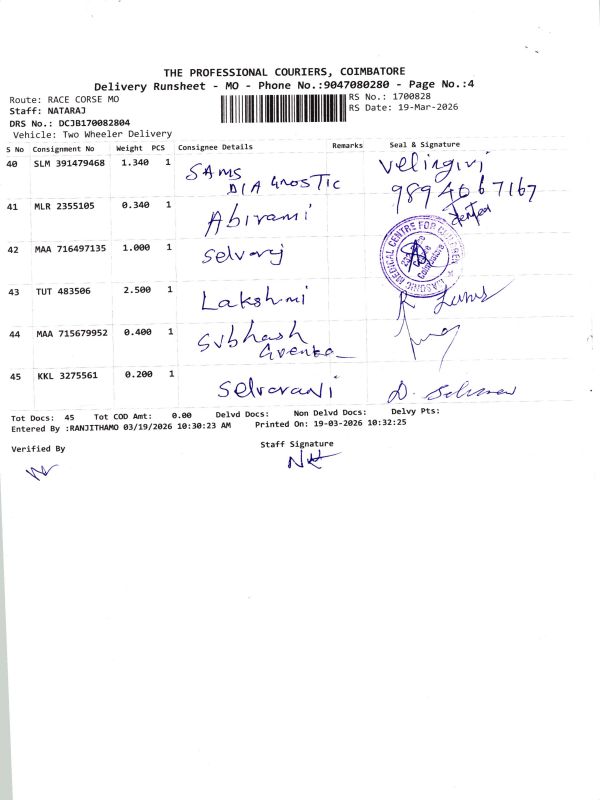 THE PROFESSIONAL COURIERS, COIMBATORE
Delivery Runsheet - MO - Phone No.:9047080280 - Page No.:4
Route: RACE CORSE MO
RS No.: 1700828
Staff: NATARAJ
RS Date: 19-Mar-2026
DRS No.: DCJB170082804
Vehicle: Two Wheeler Delivery
S No Consignment No Weight PCS Consignee Details Remarks Seal & Signature
40 SLM 391479468 1.340 1 SAMS DIAGNOSTIC velingiri
9894067167
41 MLR 2355105 0.340 1 Abirami
42 MAA 716497135 1.000 1 Selvaraj
MEDICAL CENTRE FOR CHILDREN
43 TUT 483506 2.500 1 Lakshmi
44 MAA 715679952 0.400 1 Subhash
45 KKL 3275561 0.200 1 Selvarani
Tot Docs: 45 Tot COD Amt: 0.00 Delvd Docs: Non Delvd Docs: Delvy Pts:
Entered By :RANJITHAMO 03/19/2026 10:30:23 AM Printed On: 19-03-2026 10:32:25
Verified By
Staff Signature